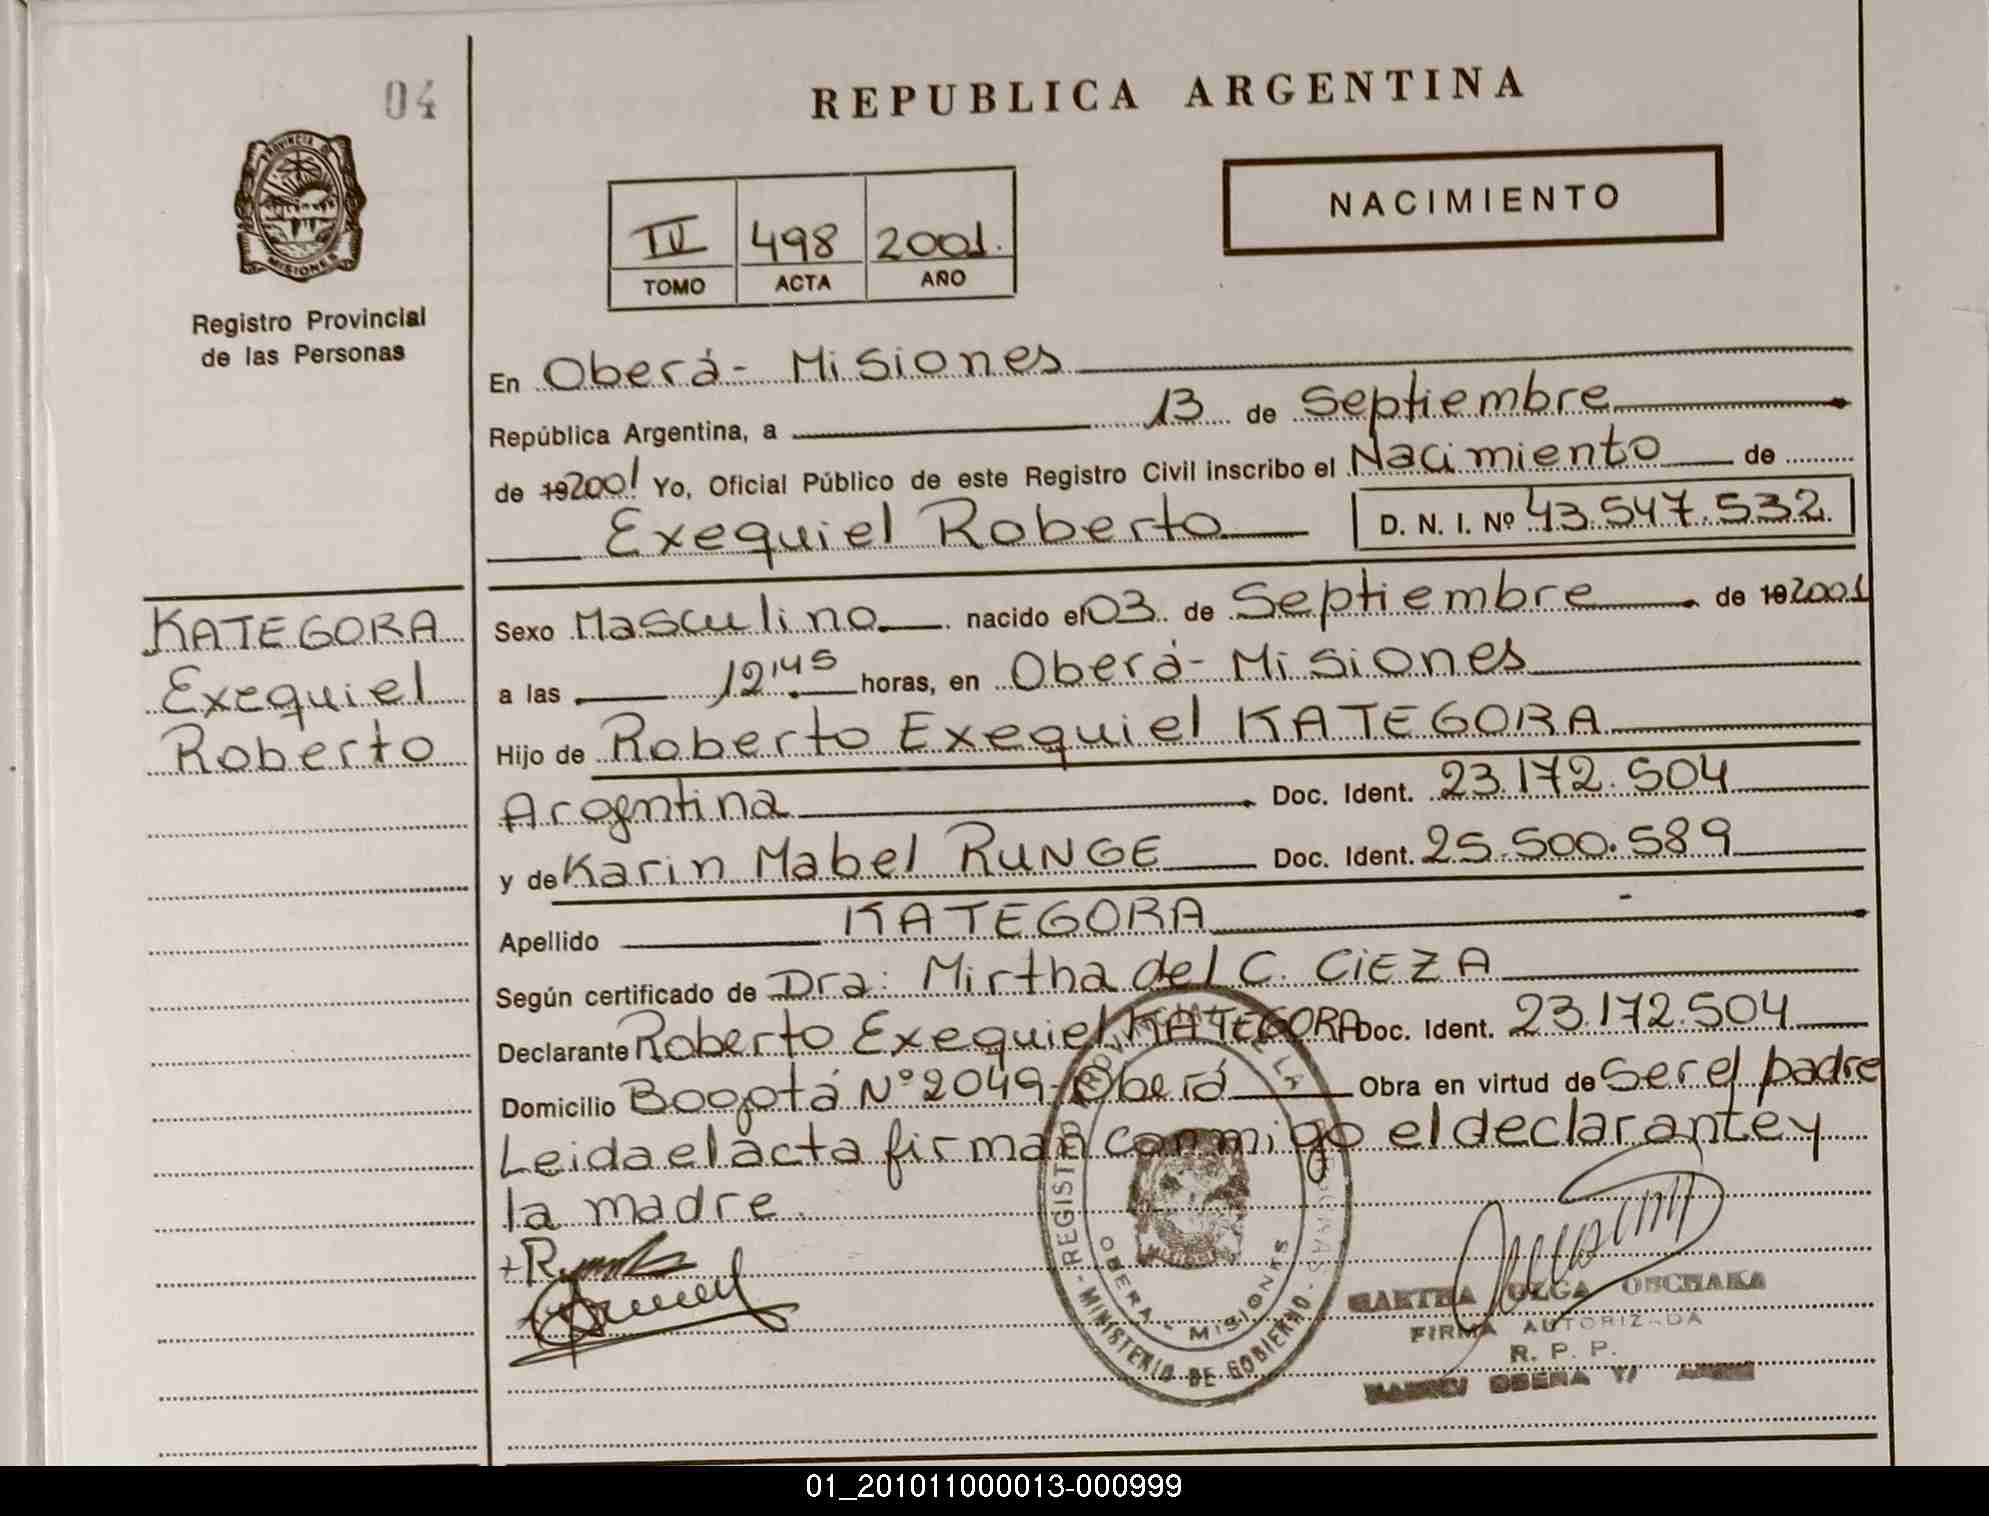 04
PROVINCIA DE
MISIONES
Registro Provincial
de las Personas
REPUBLICA ARGENTINA
NACIMIENTO
IV 498 2001.
TOMO ACTA AÑO
En Oberá - Misiones
República Argentina, a 13 de Septiembre
de 192001 Yo, Oficial Público de este Registro Civil inscribo el Nacimiento de
Exequiel Roberto D. N. I. Nº 43.547.532
KATEGORA
Exequiel
Roberto
Sexo Masculino nacido el 03 de Septiembre de 192001
a las 12,45 horas, en Oberá - Misiones
Hijo de Roberto Exequiel KATEGORA
Argentina Doc. Ident. 23.172.504
y de Karin Mabel RUNGE Doc. Ident. 25.500.589
Apellido KATEGORA
Según certificado de Dra: Mirtha del C. CiEZA
Declarante Roberto Exequiel KATEGORA Doc. Ident. 23.172.504
Domicilio Bogotá Nº 2049 - Oberá Obra en virtud de Ser el padre
Leida el acta firman conmigo el declarante y
la madre.
REGISTRO PROVINCIAL DE LAS PERSONAS
OBERA - MISIONES
- MINISTERIO DE GOBIERNO -
OLGA
FIRMA AUTORIZADA
R. P. P.
OBERA
01_201011000013-000999